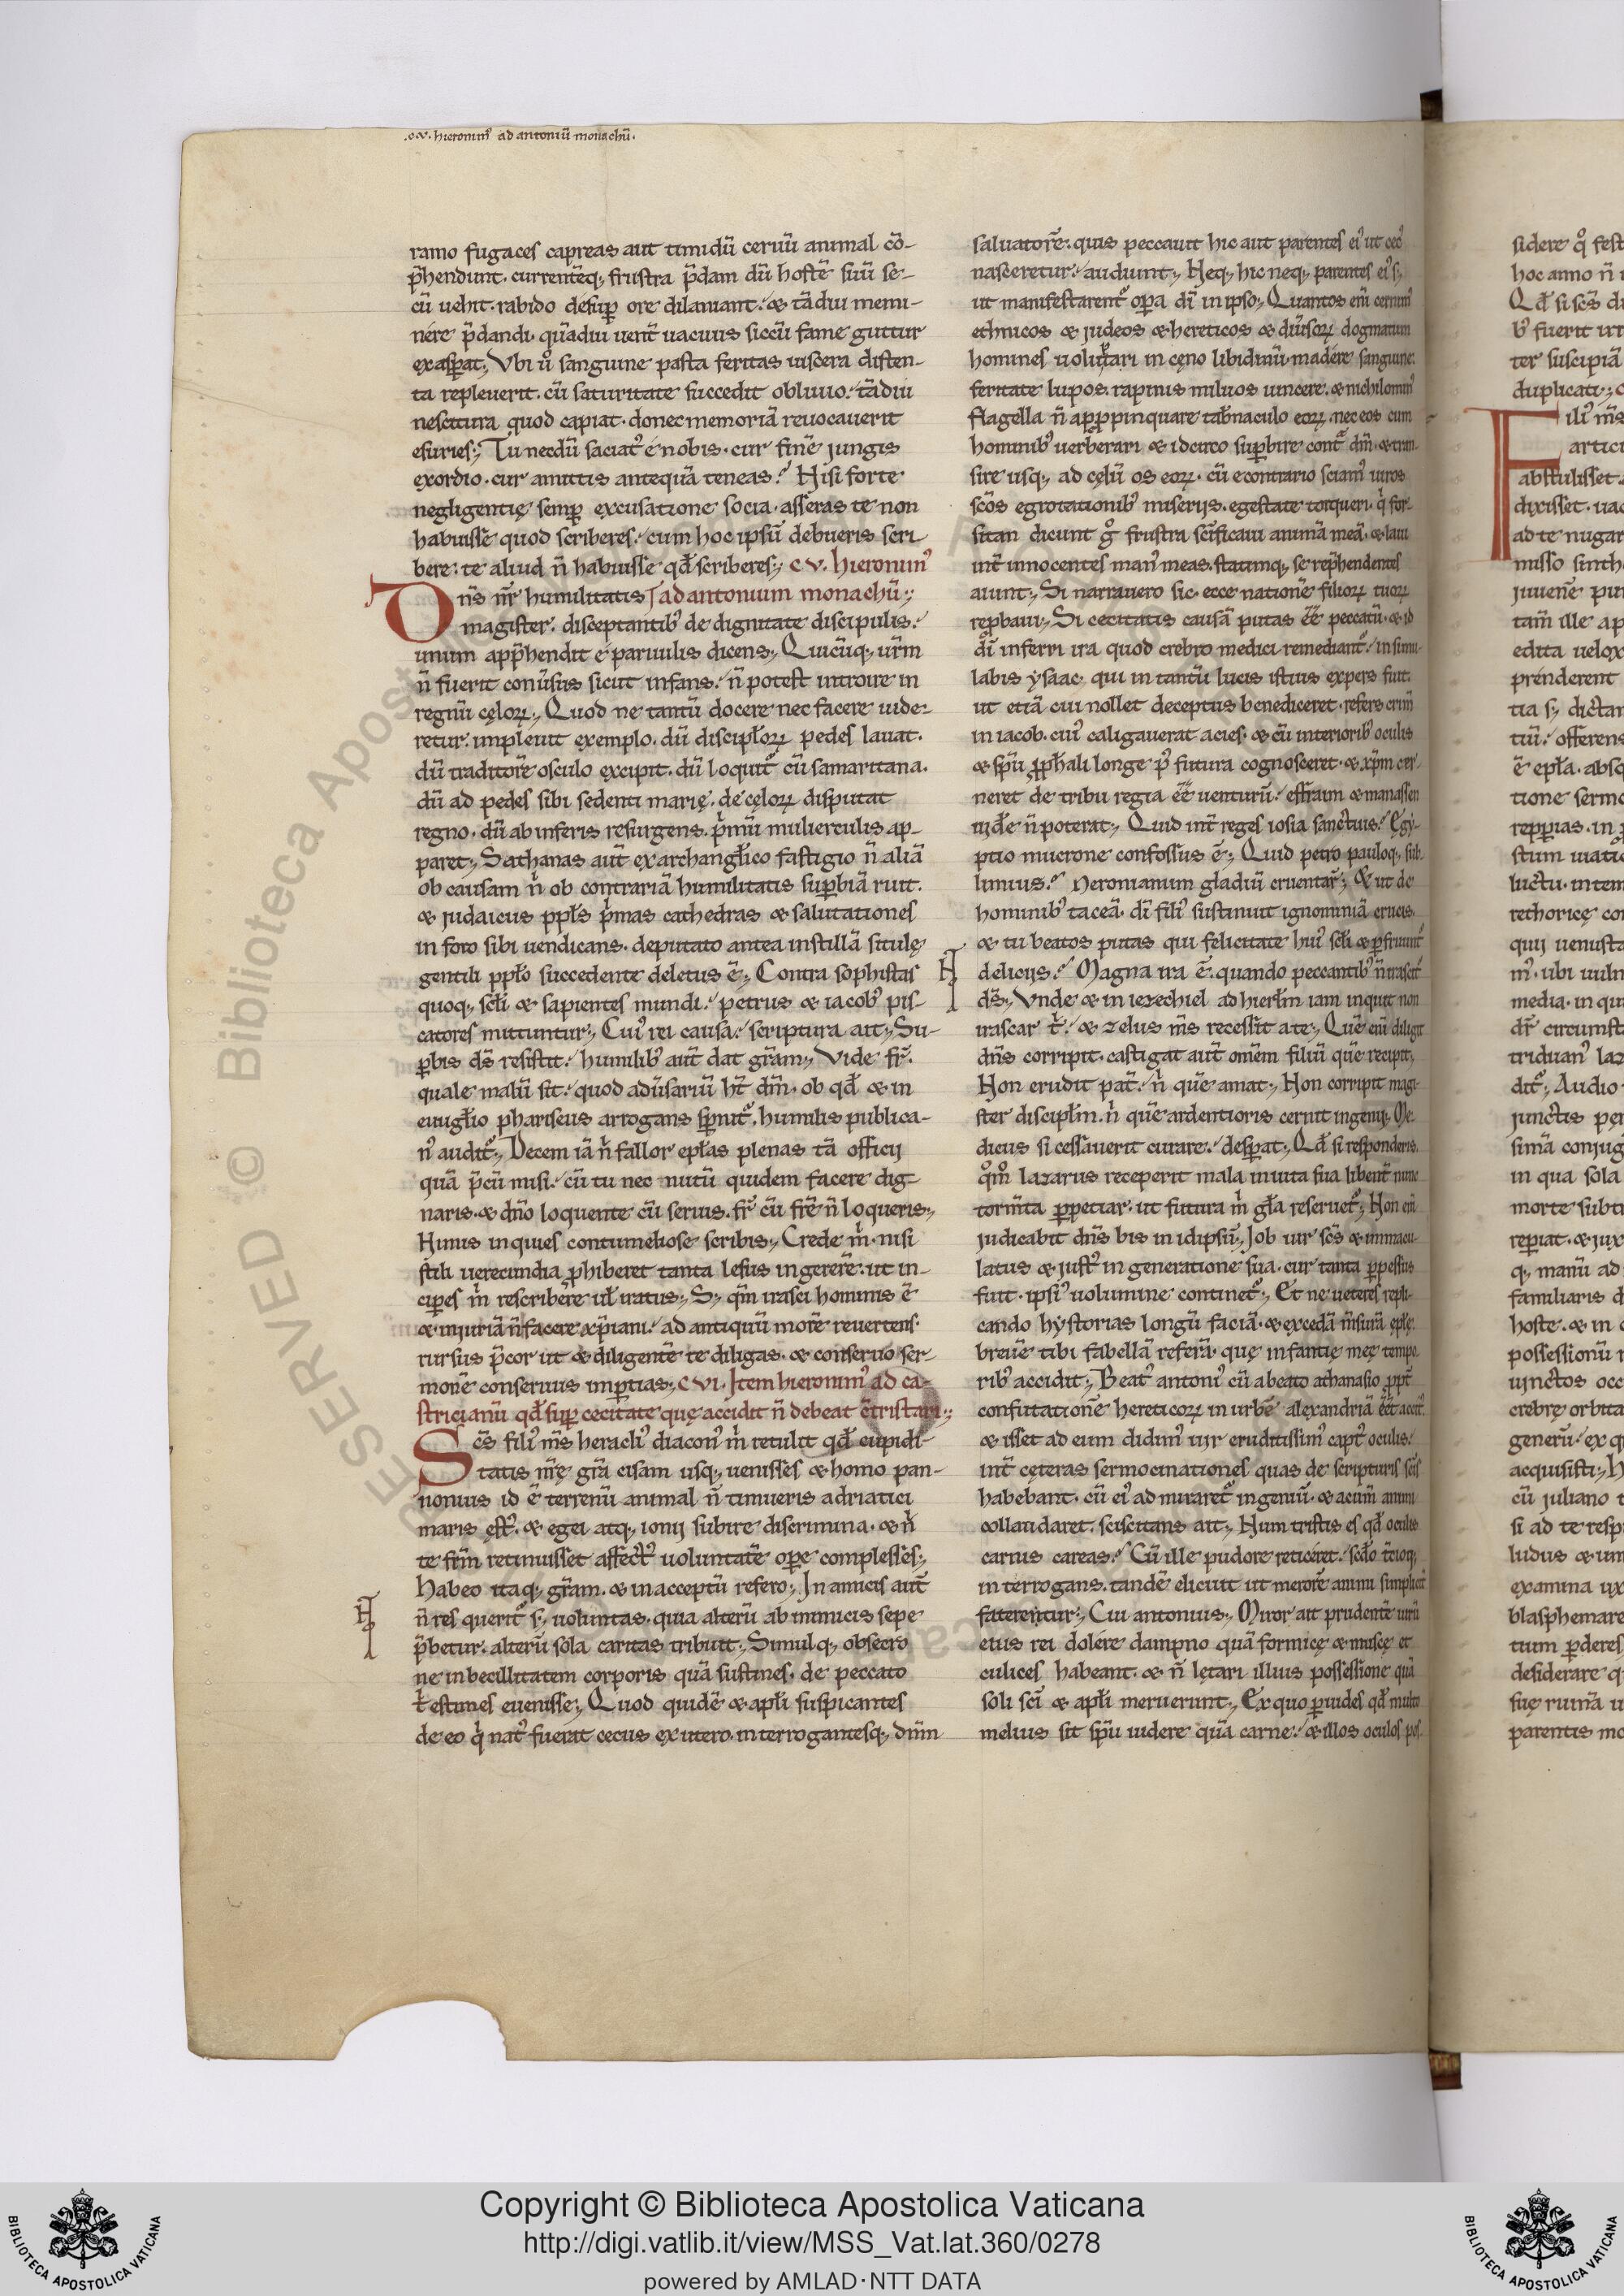 .cv. hieronim᷒ ad antoniū monachū.
ramo fugaces capreas aut timidū ceruū animal cō-
p̄hendunt. currentēq; frustra p̄dam dū hostē suū se-
cū uehit. rabido desup̱ ore dilaniant. & tādiu memi-
nere p̄dandi. quādiu uent̄ uacuus siccū fame guttur
exasp̱at. Vbi u̅o sanguine pasta feritas uiscera disten-
ta repleuerit. cū saturitate succedit obliuio. tādiu
nescitura quod capiat. donec memoriā reuocauerit
esuries; Tu necdū saciat᷒ é nobis. cur finē jungis
exordio. cur amittis antequā teneas? Nisi forte
negligentię semp̱ excusatione socia. asseras te non
habuisse quod scriberes. cum hoc ipsū debueris scri
bere. te aliud n̄ habuisse qd̄ scriberes; cv. hieronim᷒
Dn̄s nr̄ humilitatis ad antonium monachū;
magister. disceptantib᷒ de dignitate discipulis.
unum app̄hendit é paruulis dicens; Quicūq; ur̄m
n̄ fuerit conūsus sicut infans. n̄ potest introire in
regnū cęloꝝ; Quod ne tantū docere nec facere uide-
retur. impleuit exemplo. dū discipl̄oꝝ pedes lauat.
dū traditorē osculo excipit. dū loquit᷑ cū samaritana.
dū ad pedes sibi sedenti marię. de cęloꝝ disputat
regno. dū ab inferis resurgens. p̄mū mulierculis ap-
paret; Sathanas aut̄ ex archangl̄ico fastigio n̄ aliā
ob causam n̄ ob contrariā humilitatis sup̱biā ruit.
& judaicus ppl̄s p̄mas cathedras & salutationes
in foro sibi uendicans. deputato antea in stillā situlę
gentili ppl̄o succedente deletus ē; Contra sophistas
quoq; scl̄i & sapientes mundi. petrus & iacob᷒ pis-
catores mittuntur; Cui᷒ rei causa. scriptura ait; Su-
p̱bis ds̄ resistit. humilib᷒ aut̄ dat gr̄am; Vide fr̄.
quale malū sit. quod adūsariū ht̄ dm̄. ob qd̄ & in
euugl̄io phariseus arrogans sp̱nit᷑. humilis publica-
n᷒ audit᷑; Decem iā n̄ fallor epl̄as plenas tā officij
quā p̄cū misi. cū tu nec nutū quidem facere dig-
naris. & dn̄o loquente cū seruis. fr̄ cū fr̄e n̄ loqueris;
Nimis inquies contumeliose scribis; Crede m̄. nisi
stili uerecundia ꝓhiberet tanta lesus ingererē. ut in-
cip̱es m̄ rescribere ul̄ iratus; S; qm̄ irasci hominis ē
& injuriā n̄ facere xp̄iani. ad antiquū morē reuertens.
rursus p̄cor ut & diligentē te diligas. & conseruo ser-
monē conseruus imp̱tias; cvi. Item hieronim᷒ ad ca-
stricianū qd̄ sup̱ cecitate quę accidit n̄ debeat c̄tristari;
Sc̄s fili᷒ ms̄ heracli᷒ diacon᷒ m̄ retulit qd̄ cupidi-
tatis mr̄ę gr̄a cisam usq; uenisses & homo pan-
nonius id ē terrenū animal n̄ timueris adriatici
maris ęst᷒. & egei atq; ionij subire discrimina. & n̄
te frm̄ retinuisset affect᷒ uoluntatē op̱e complesses;
Habeo itaq; gr̄am. & in acceptū refero; In amicis aut̄
n̄ res querit᷑ s; uoluntas. quia alterū ab inimicis sepe
p̄betur. alterū sola caritas tribuit; Simulq; obsecro
ne inbecillitatem corporis quā sustines. de peccato
t̄ estimes euenisse; Quod quidē & apl̄i suspicantes
de eo q̄ nat᷒ fuerat cecus ex utero. interrogantesq; dn̄m
saluatorē. quis peccauit hic aut parentes ei᷒ ut cec᷒
nasceretur. audiunt; Neq; hic neq; parentes ei᷒ s;
ut manifestarent᷑ op̱a dī in ipso; Quantos em̄ cernim᷒
ethnicos & judeos & hereticos & diūsoꝝ dogmatum
homines uolutari in cęno libidinū. madere sanguine.
feritate lupos. rapinis miluos uincere. & nichilomin᷒
flagella n̄ appropinquare tab̄naculo eoꝝ. nec eos cum
hominib᷒ uerberari & idcirco sup̱bire cont̄ dm̄. & tran-
sire usq; ad cęlū os eoꝝ. cū econtrario sciam᷒ uiros
scōs egrotationib᷒ miserijs. egestate torqueri. q̄ for-
sitan dicunt g̊ frustra sc̄ificaui animā meā. & laui
int̄ innocentes man᷒ meas. statimq; se rep̄hendentes
aiunt; Si narrauero sic. ecce nationē filioꝝ tuoꝝ
reprobaui; Si cecitatis causā putas ēē peccatū. & id
dī inferri ira quod crebro medici remediant᷑. insimu-
labis ysaac. qui in tantū lucis istius expers fuit.
ut etiā cui nollet deceptus benediceret. refers crim̄
in iacob. cui᷒ caligauerat acies. & cū interiorib᷒ oculis
& sp̄u ꝓph̄ali longe p᷒ futura cognosceret. & xp̄m cer-
neret de tribu regia ēē uenturū. effraim & manassen
uid̄e n̄ poterat; Quid int̄ reges iosia sanctius. Egy-
ptio mucrone confossus ē; Quid petro pauloq; sub-
limius. Neronianum gladiū cruentar̄; & ut de
hominib᷒ taceā. dī fili᷒ sustinuit ignominiā crucis.
& tu beatos putas qui felicitate hui᷒ scl̄i & p̱fruunt᷑
delicijs. Magna ira ē. quando peccantib᷒ n̄ irascit᷑
ds̄; Vnde & in iezechiel ad hierl̄m iam inquit non
irascar t̄. & zelus ms̄ recessit a te; Quē em̄ diligit
dn̄s corripit. castigat aut̄ om̄em filiū quē recipit;
Non erudit pat̄. n̄ quē amat; Non corripit magi-
ster discipl̄m. n̄ quē ardentioris cernit ingenij; Me-
dicus si cessauerit curare. desp̱at; Qd̄ si responderis.
q̊m̊ lazarus receperit mala in uita sua libent̄ nunc
torm̄ta p̱petiar. ut futura m̄ gl̄a reseruet᷑; Non em̄
judicabit dn̄s bis in idipsū; Job uir sc̄s & immacu-
latus & just᷒ in generatione sua. cur tanta p̱pessus
fuit. ipsi᷒ uolumine continet᷑; Et ne ueteres repli-
cando hystorias longū faciā. & excedā m̄surā eplę.
breuē tibi fabellā referā. quę infantię meę tempo-
rib᷒ accidit; Beat᷒ antoni᷒ cū a beato athanasio ꝓpt̄
confutationē hereticoꝝ in urbē alexandriā
& isset ad eum didim᷒ uir eruditissim᷒ capt᷒ oculis.
int̄ cęteras sermocinationes quas de scripturis sc̄is
habebant. cū ei᷒ admiraret᷑ ingeniū. & acum̄ animi
collaudaret. sciscitans ait; Num tristis es qd̄ oculis
carnis careas? Cū ille pudore reticeret. scd̄o t̄cioq;
interrogans. tandē elicuit ut merorē animi simplicit̄
fateretur; Cui antonius; Miror ait prudentē uirū
eius rei dolere dampno quā formicę & muscę et
culices habeant. & n̄ lętari illius possessione quā
soli sc̄i & apl̄i meruerunt; Ex quo p̱uides qd̄ multo
melius sit sp̄u uidere quā carne. & illos oculos pos-
Copyright © Biblioteca Apostolica Vaticana
http://digi.vatlib.it/view/MSS_Vat.lat.360/0278
powered by AMLAD·NTT DATA